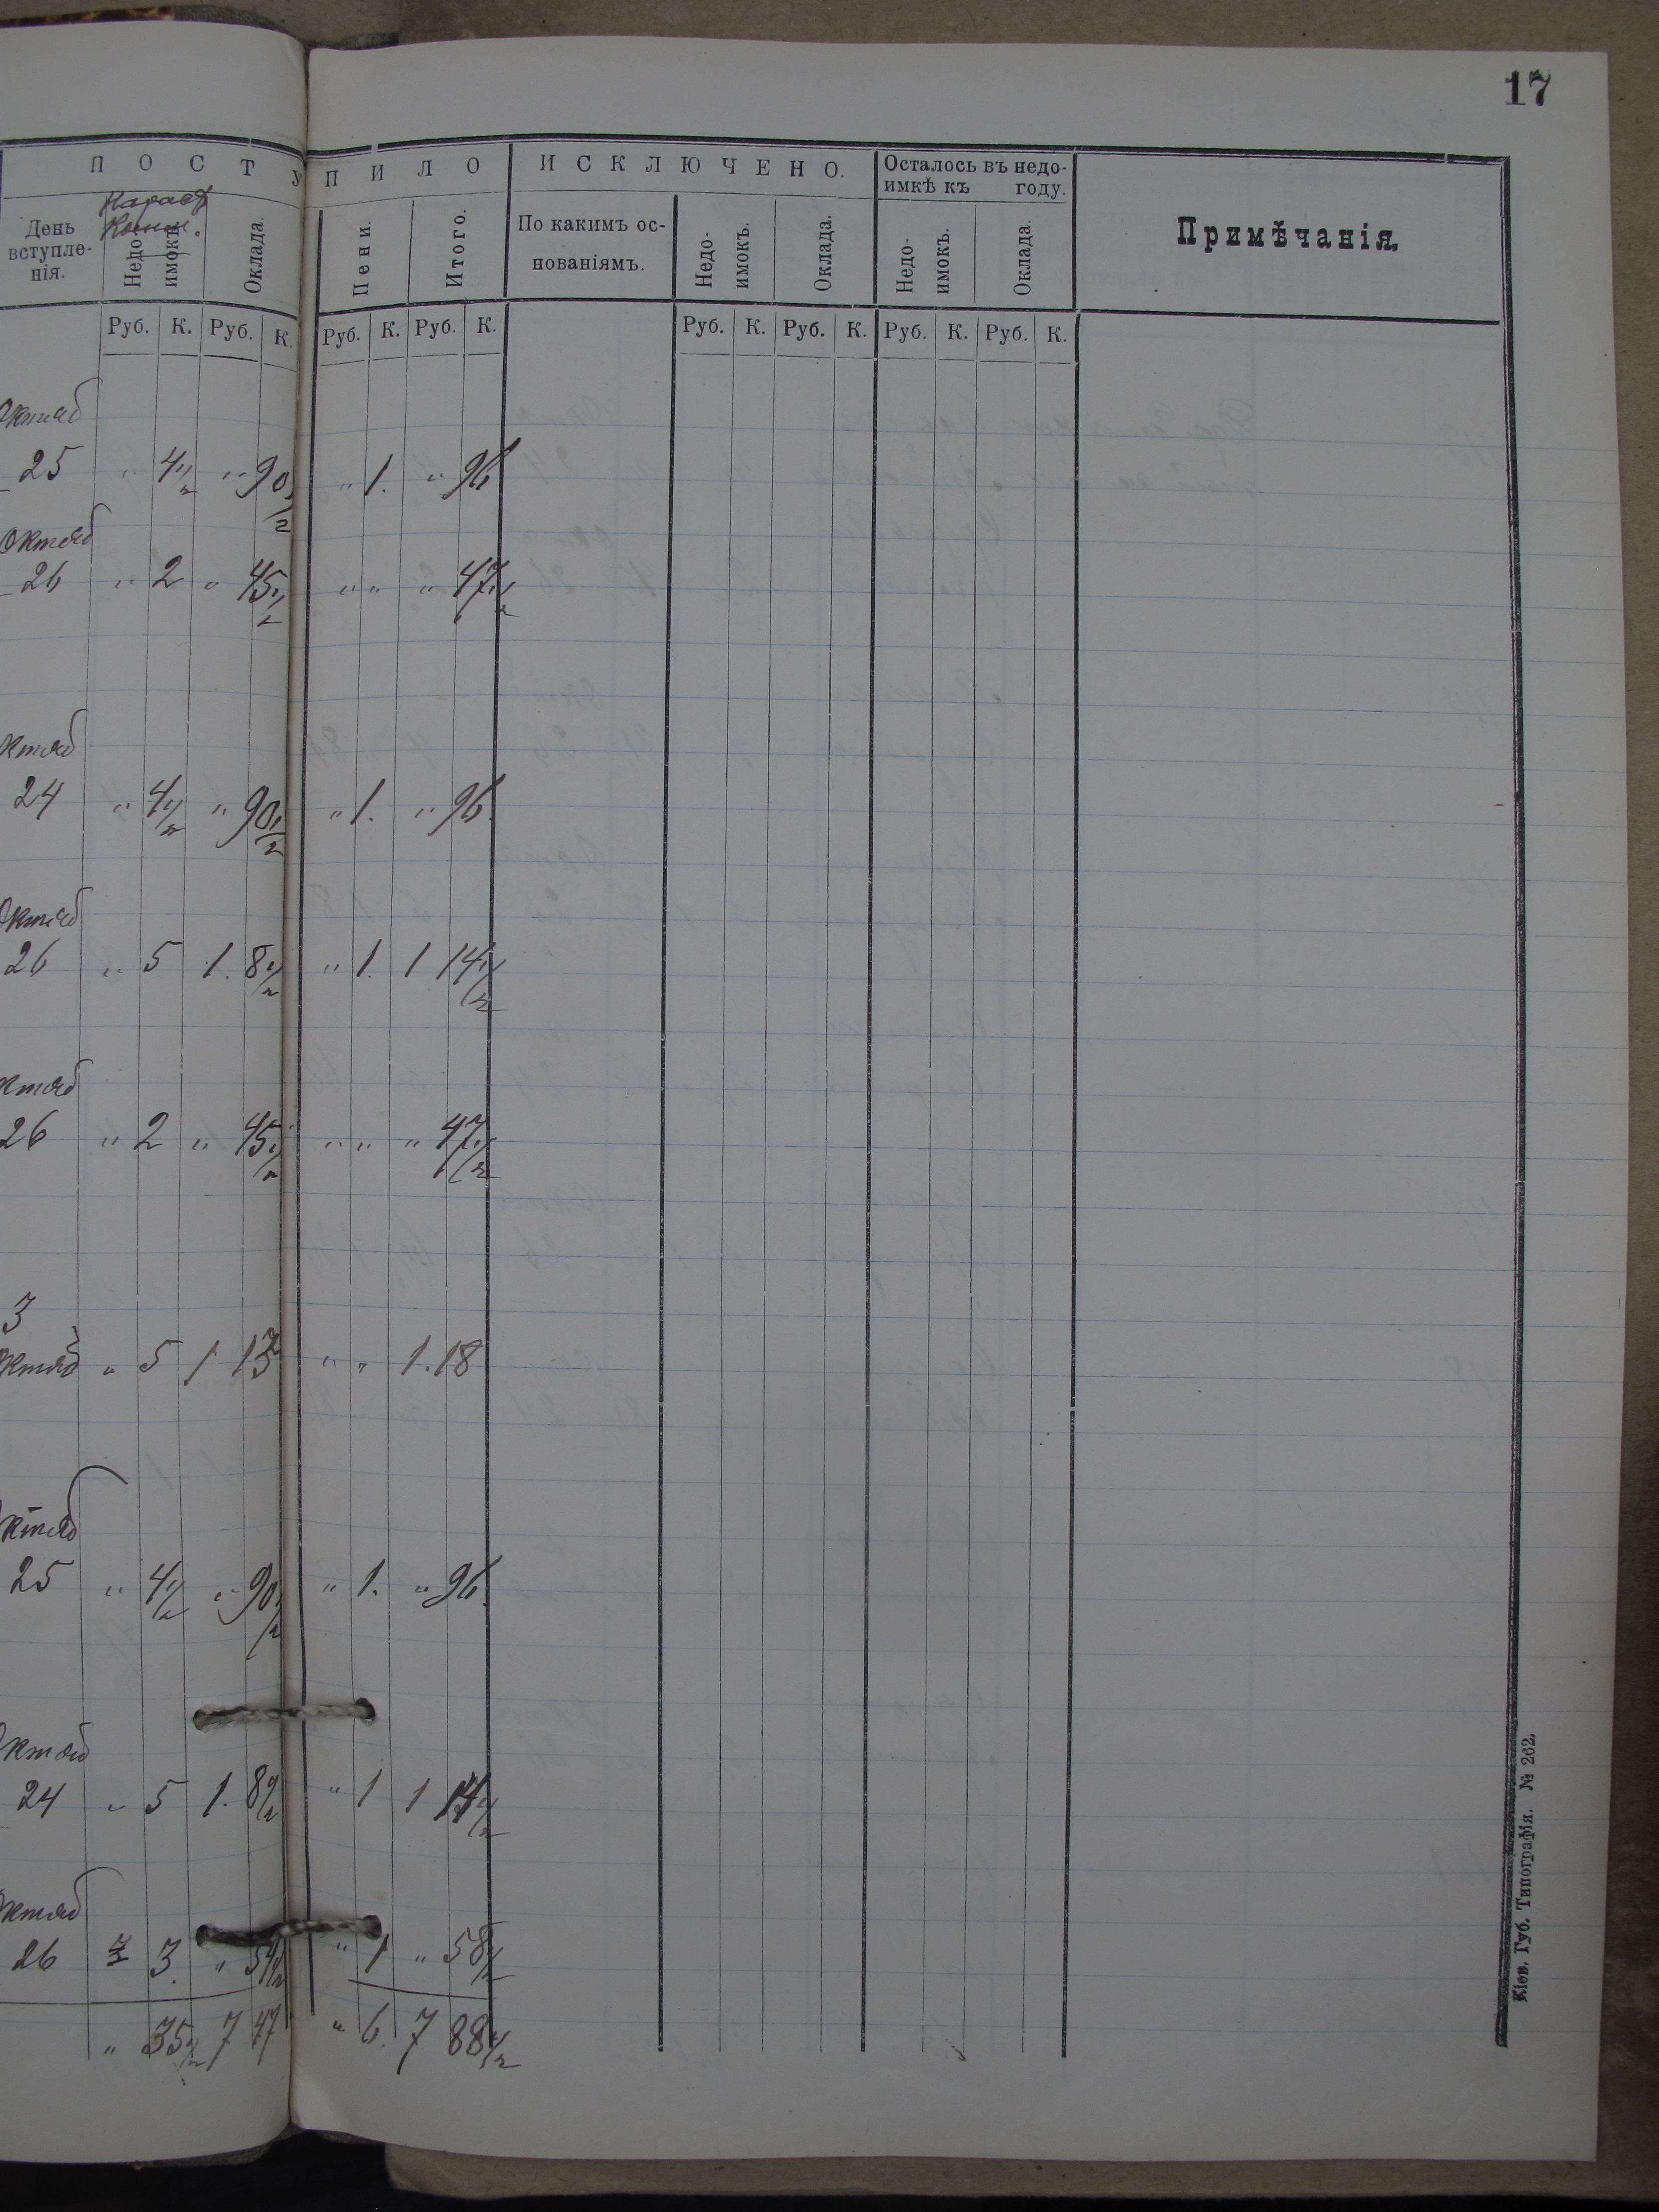 17
ПОСТУПИЛО ИСКЛЮЧЕНО. Осталось въ недо-
имкѣ къ году. Примѣчанія.
День вступле-нія. Недо-имокъ. Оклада. Пени. Итого. По какимъ ос-нованіямъ. Недо-имокъ. Оклада. Недо-имокъ. Оклада.
Руб. К. Руб. К. Руб. К. Руб. К. Руб. К. Руб. К. Руб. К. Руб. К.
Октяб
25 " 4 1/2 " 90 1/2 " 1. " 96
Октяб
26 " 2 " 45 1/2 " " " 47 1/2
Октяб
24 " 4 1/2 " 90 1/2 " 1. " 96.
Октяб
26 " 5 1. 8 1/2 " 1. 1 14 1/2
Октяб
26 " 2 " 45 1/2 " " " 47 1/2
3
Октяб " 5 1 13 " " 1. 18
Октяб
25 " 4 1/2 " 90 1/2 " 1. " 96.
Октяб
24 " 5 1. 8 1/2 " 1 1 14 1/2
Октяб
26 3. " 54 1/2 " 1 " 58 1/2
" 35 1/2 7 47 " 6. 7 88 1/2
Кіев. Губ. Типографія. № 262.